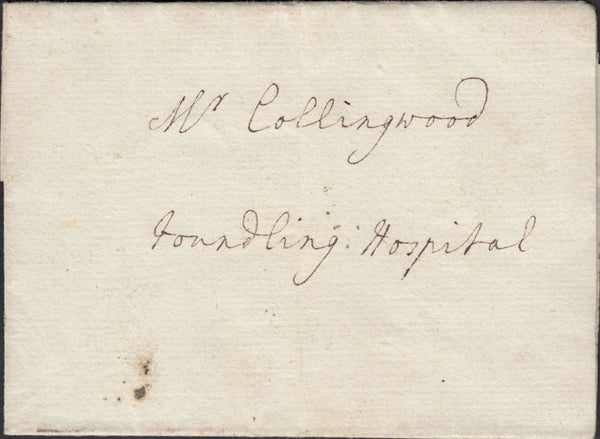 Mr Collingwood
Foundling Hospital